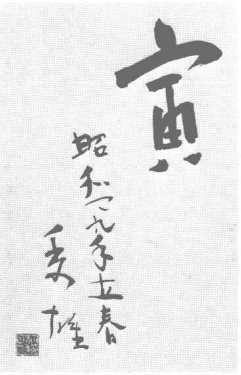 寅
昭和四九年立春
秀雄